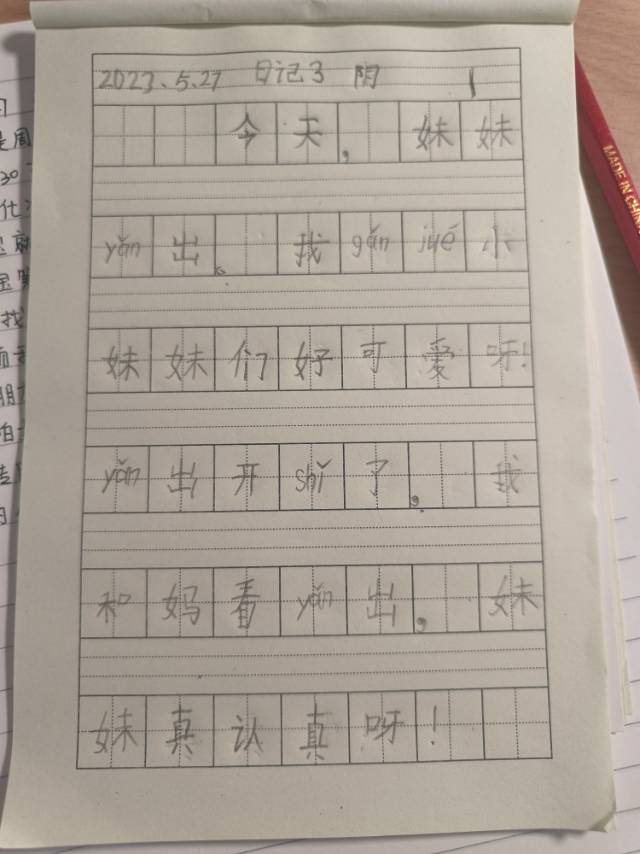 2023.5.27 日记3 阴 1
今天，妹妹
yǎn出。我gǎn jué小
妹妹们好可爱呀！
yǎn出开shǐ了，我
和妈看yǎn出，妹
妹真认真呀！
MADE IN CHIN